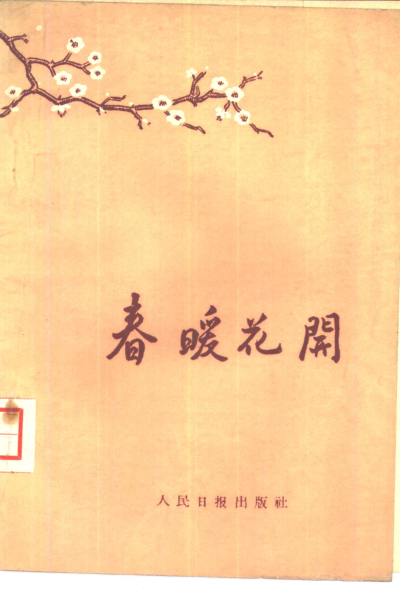 春暖花開
人民日报出版社